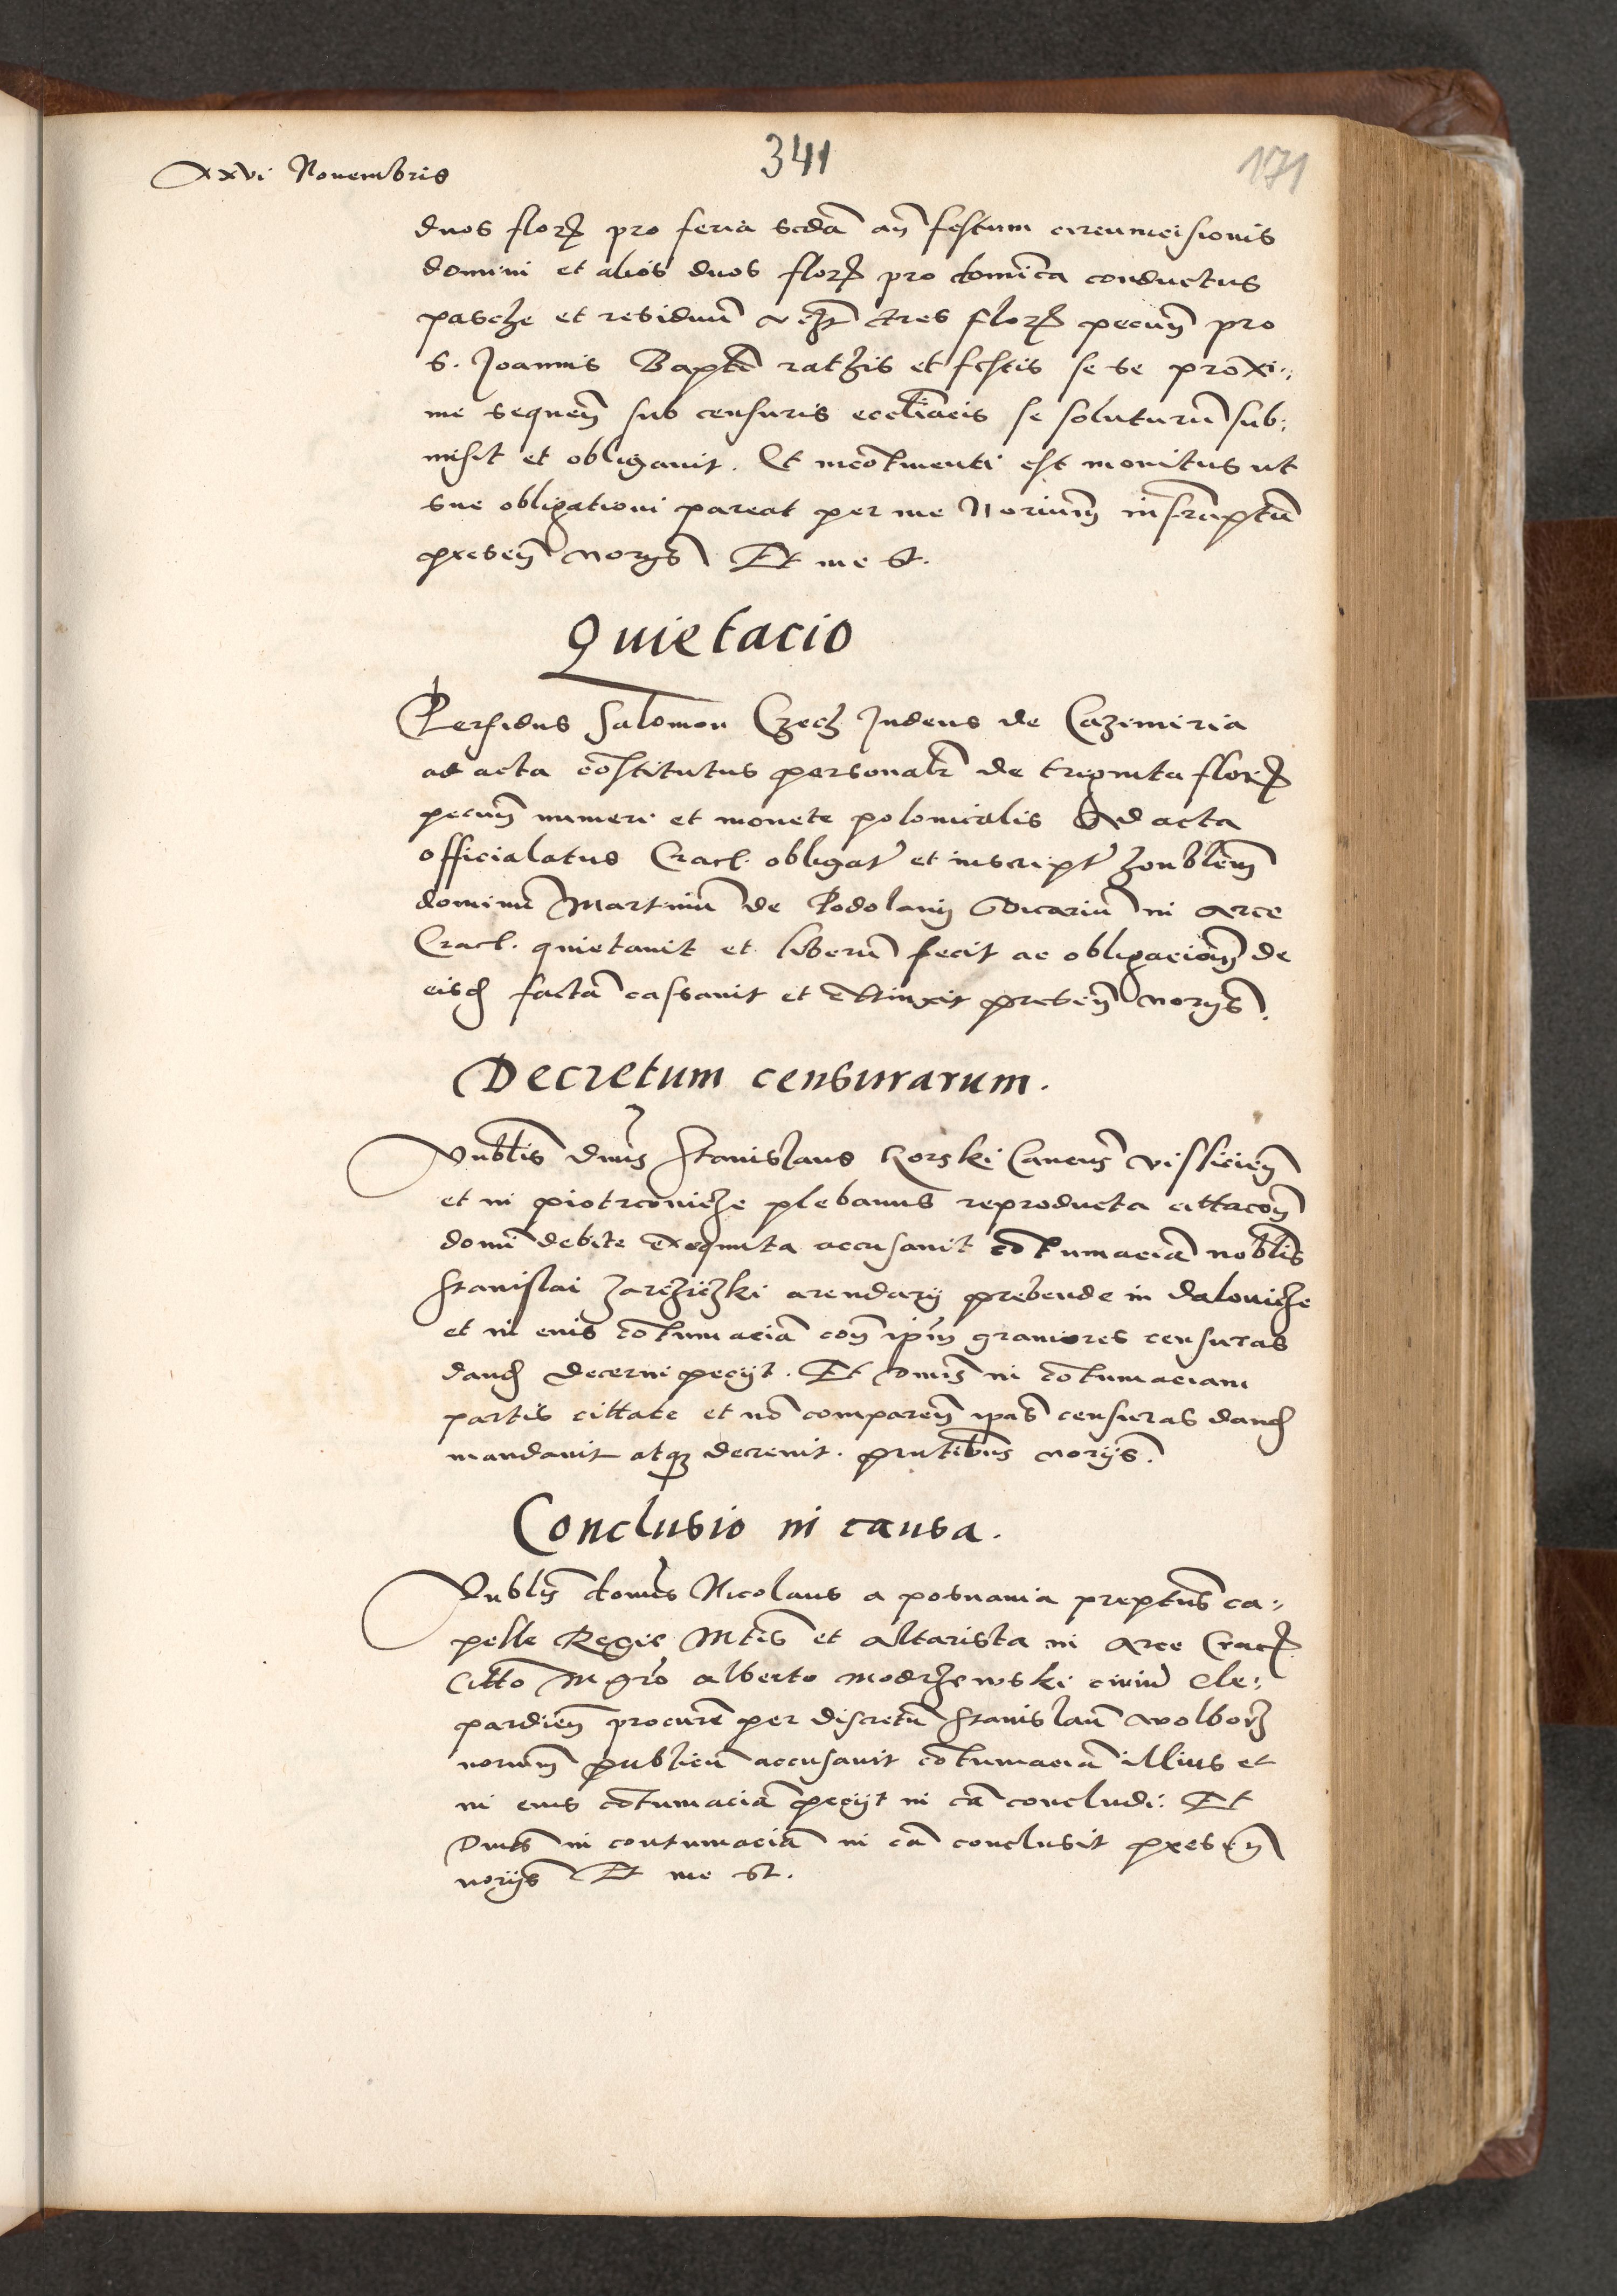 341
171
xxvi Novembris
duos flor pro feria scda an festum circumcisionis
domini et alios duos flor pro dominica conductus
pasche et residuu vczt tres flor pecun pro
S. Joannis Bapte festis se se proxi-
me sequen sub censuris eccliacis se soluturu sub-
misit et obligavit. Et incotinenti est monitus ut
sue obligationi pareat per me Norium infrascriptu
presen norijs Et me St.
Quietacio
Perfidus Salomon Czech Judeus de Cazimiria
ad acta costitutus personalr de triginta flor
pecun numeri et monete polonicalis Ad acta
officialatus Cracl. obligat et inscript honblem
dominu Martinu de Podolani Vicariu in Arce
Cracl. quietavit et liberu fecit ac obligacion de
eisd facta cassavit et extinxit presen norijs.
Decretum censurarum.
Vnblis dnus Stanislaus Gorski Cancus vislicien
et in piotrowicze plebanus reproducta cittacon
domi debite exequuta accusavit cotumacia noblis
Stanislai arendarij prebende in Dalovicze
et in eius cotumacia con ipm graviores censuras
dand decerni pecijt. Et Dnus in cotumaciam
partis cittate et no comparen ipas censuras dand
mandavit atq decrevit. prntibus norijs.
Conclusio in causa.
Vnblis doms Nicolaus a posnania preptus ca-
pelle Regie Mtis et altarista in Arce Crac
Citto Mgro Alberto Modrzewski civiu Cle-
pardien procure per discretu Stanislau Wolborz
norium publicu accusavit cotumacia illius et
in eius cotumacia pecijt in ca concludi: Et
Dnus in contumacia in ca conclusit presen
norijs Et me St.